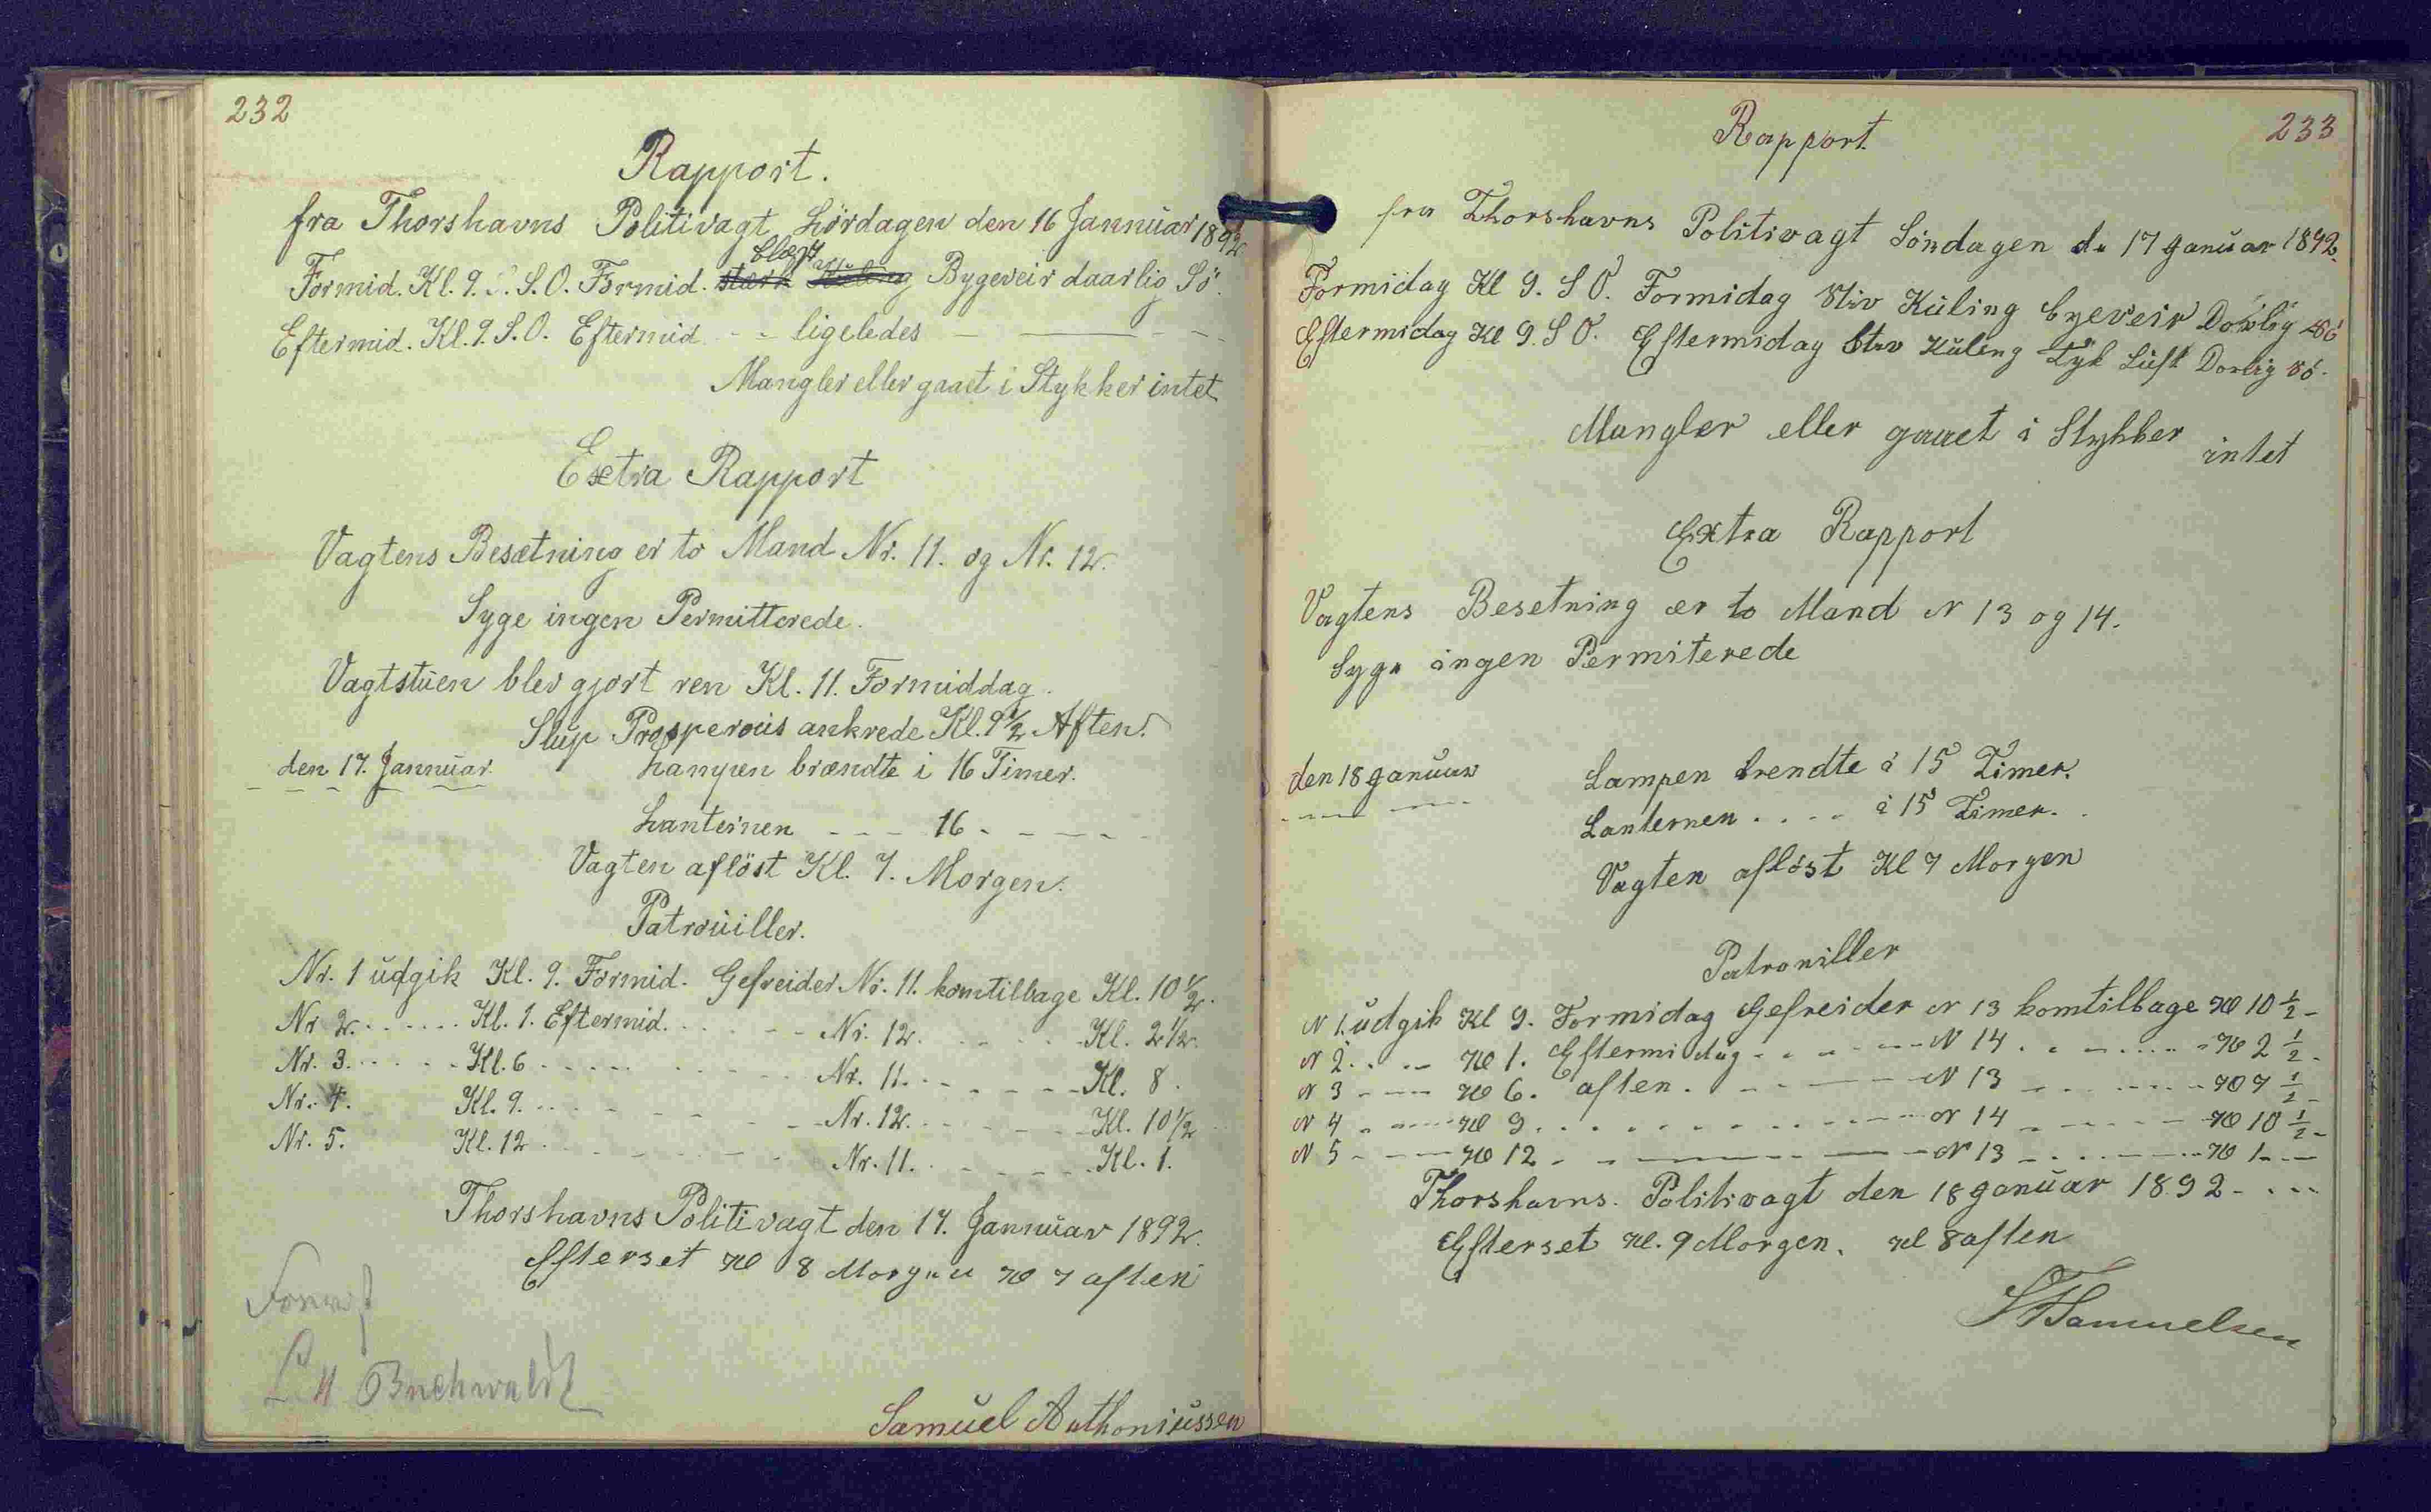 232
Rapport.
fra Thorshavns Politivagt Lördagen den 16 Jannuar 1892
Formid. Kl. 9. S.O. Formid. stærk Kuling Bygeveir daarlig Sö.
Eftermid. Kl. 9. S.O. Eftermid - - ligeledes — — - -
Mangler eller gaaet i Stykker intet
Exetra Rapport
Vagtens Besætning er to Mand Nr. 11. og Nr. 12.
Syge ingen Permitterede.
Vagtstuen blev gjort ren Kl. 11. Formiddag.
Slup Prosperous ankrede Kl. 9 1/2 Aften.
den 17. Jannuar. Lampen brændte i 16 Timer.
Lanternen - - - 16 - - - - -
Vagten aflöst Kl. 7. Morgen.
Patrouiller.
Nr. 1 udgik Kl. 9. Formid. Gefreider Nr. 11. komtilbage Kl. 10 1/2.
Nr 2. . . . . . . Kl. 1. Eftermid. . . - - Nr. 12. . . . . . Kl. 2 1/2.
Nr. 3. . . . . . Kl. 6 . . . . . - - - Nr. 11. . . . - - - Kl. 8.
Nr. 4. Kl. 9. . . . - - - - - Nr. 12. . . . . - - - Kl. 10 1/2
Nr. 5. Kl. 12 . . . - - - - Nr. 11. . . - - - Kl. 1.
Thorshavns Politivagt den 17. Jannuar 1892.
Efterset Kl 8 Morgen Kl 7 aften
Buchwaldt
Samuel Anthoniussen
233
Rapport
fra Thorshavns Politivagt Söndagen de 17 Januar 1892.
Formidag Kl 9. S O. Formidag Stiv Kuling byeveir Dorlig Sö
Eftermidag Kl 9. S O. Eftermidag Stiv Kuling Tyk Luft Dorlig Sö.
Mangler eller gaaet i Stykker intet
Extra Rapport
Vagtens Besetning er to Mand N 13 og 14.
Syge ingen Permiterede
den 18 Januar Lampen brendte i 15 Timer.
Lanternen . . . . i 15 Timer. .
Vagten aflöst Kl 7 Morgen
Patrouiller
N 1. udgik Kl 9. Formidag Gefreider N 13 komtilbage Kl 10 1/2 -
N 2. . . - Kl 1. Eftermidag - . - - - N 14 . . - . . . - Kl 2 1/2 -
N 3 - - - Kl 6. aften. - - - - N 13 - . - . . . - Kl 7 1/2 -
N 4 - - - - Kl 9 . . . . . . . . . - - - N 14 - - . - - - Kl 10 1/2 -
N 5 - - - Kl 12 - - - - - - N 13 - . . . - - - Kl 1 - -
Thorshavns. Politivagt den 18 Januar 1892 - . - -
Efterset Kl. 9 Morgen. Kl 8 aften
Samuelsen